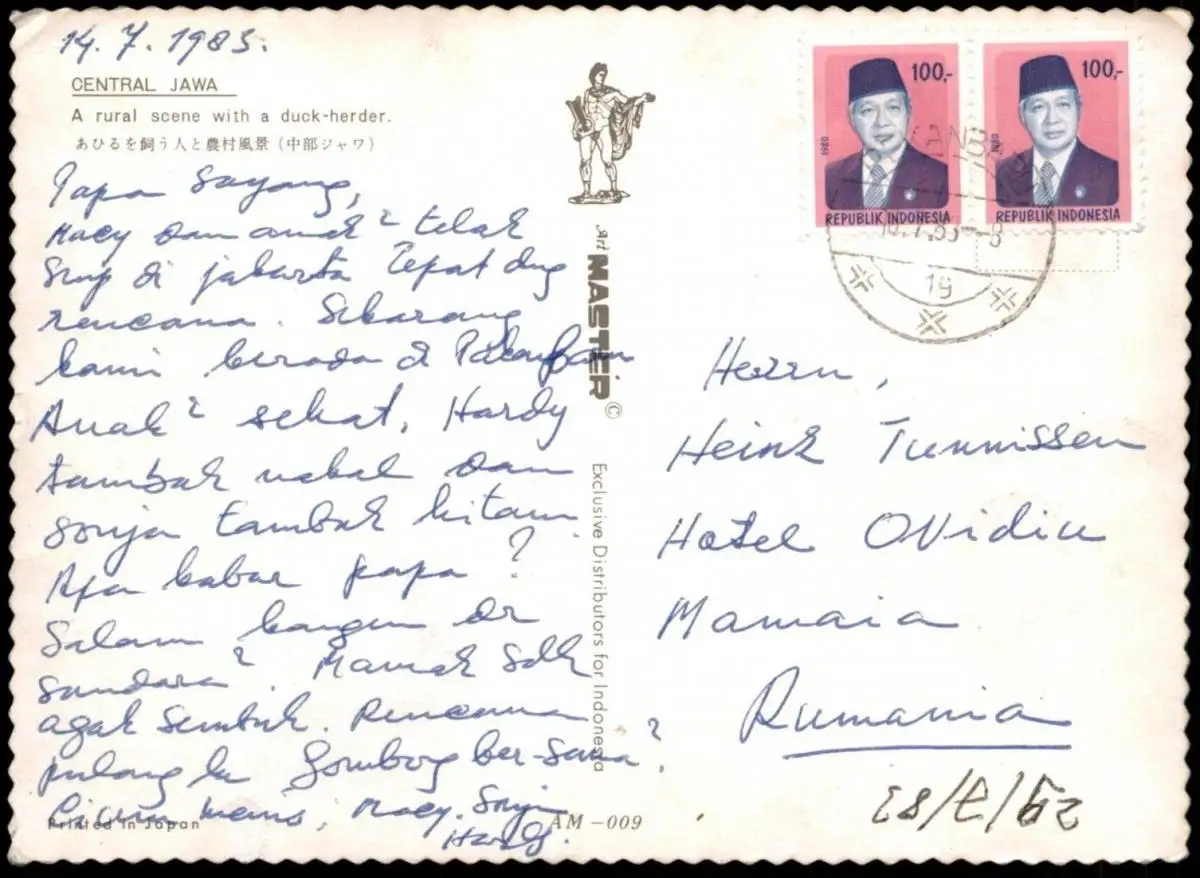 14.7.1983.
CENTRAL JAWA
A rural scene with a duck-herder.
あひるを飼う人と農村風景(中部ジャワ)
Papa Sayang,
Maey dan anak² telah
di jakarta tepat dng
rencana. Sekarang
kami berada di
Anak² sehat, Hardy
tambah nakal dan
Sonja tambah hitam.
Apa kabar papa?
Salam kangen dr
saudara². Mamak sdh
agak sembuh. Rencana
pulang ke Gombong ber-sama².
Cium manis, Maey. Sonja
Hardy.
Printed in Japan
Art MASTER ©
Exclusive Distributors for Indonesia
AM-009
100,-
1980
REPUBLIK INDONESIA
100,-
1980
REPUBLIK INDONESIA
19
Herrn,
Heinz Tunnissen
Hotel Ovidiu
Mamaia
Rumania
29/7/83